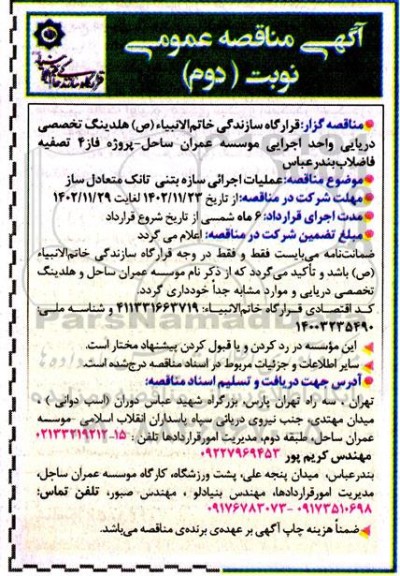 آگهی مناقصه عمومی
نوبت ( دوم)
مناقصه گزار: قرارگاه سازندگی خاتم‌الانبیاء (ص) هلدینگ تخصصی
دریایی واحد اجرایی موسسه عمران ساحل-پروژه فاز۴ تصفیه
فاضلاب‌بندرعباس
موضوع مناقصه: عملیات اجرائی سازه بتنی تانک متعادل ساز
مهلت شرکت در مناقصه: از تاریخ ۱۴۰۲/۱۱/۲۳ لغایت ۱۴۰۲/۱۱/۲۹
مدت اجرای قرارداد: ۶ ماه شمسی از تاریخ شروع قرارداد
مبلغ تضمین شرکت در مناقصه: اعلام می گردد
ضمانت‌نامه می‌بایست فقط و فقط در وجه قرارگاه سازندگی خاتم‌الانبیاء
(ص) باشد و تأکید می‌گردد که از ذکر نام موسسه عمران ساحل و هلدینگ
تخصصی دریایی و موارد مشابه جداً خودداری گردد.
کد اقتصادی قرارگاه خاتم‌الانبیاء: ۴۱۱۳۳۱۶۶۳۷۱۹ و شناسه ملی:
۱۴۰۰۳۲۳۵۴۹۰
این مؤسسه در رد کردن و یا قبول کردن پیشنهاد مختار است.
سایر اطلاعات و جزئیات مربوط در اسناد مناقصه درج‌شده است.
آدرس جهت دریافت و تسلیم اسناد مناقصه:
تهران ، سه راه تهران پارس، بزرگراه شهید عباس دوران (اسب دوانی) ،
میدان مهتدی، جنب نیروی دریائی سپاه پاسداران انقلاب اسلامی موسسه
عمران ساحل، طبقه دوم، مدیریت امورقراردادها تلفن: ۱۵-۰۲۱۳۳۲۱۹۲۱۲
مهندس کریم پور ۰۹۲۲۷۹۶۹۴۵۳
بندرعباس، میدان پنجه علی، پشت ورزشگاه، کارگاه موسسه عمران ساحل،
مدیریت امورقراردادها، مهندس بنیادلو ، مهندس صبور، تلفن تماس:
۰۹۱۷۳۵۱۰۶۹۸ -۰۹۱۷۶۷۸۳۰۷۳
ضمناً هزینه چاپ آگهی بر عهده‌ی برنده‌ی مناقصه می‌باشد.